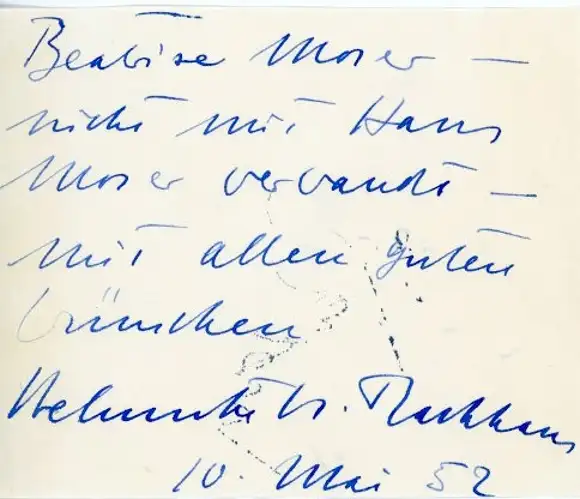 Beatrise Moser —
nicht mit Hans
Moser verwandt —
mit allen guten
Wünschen
Helmuth M. Backhaus
10. Mai 52